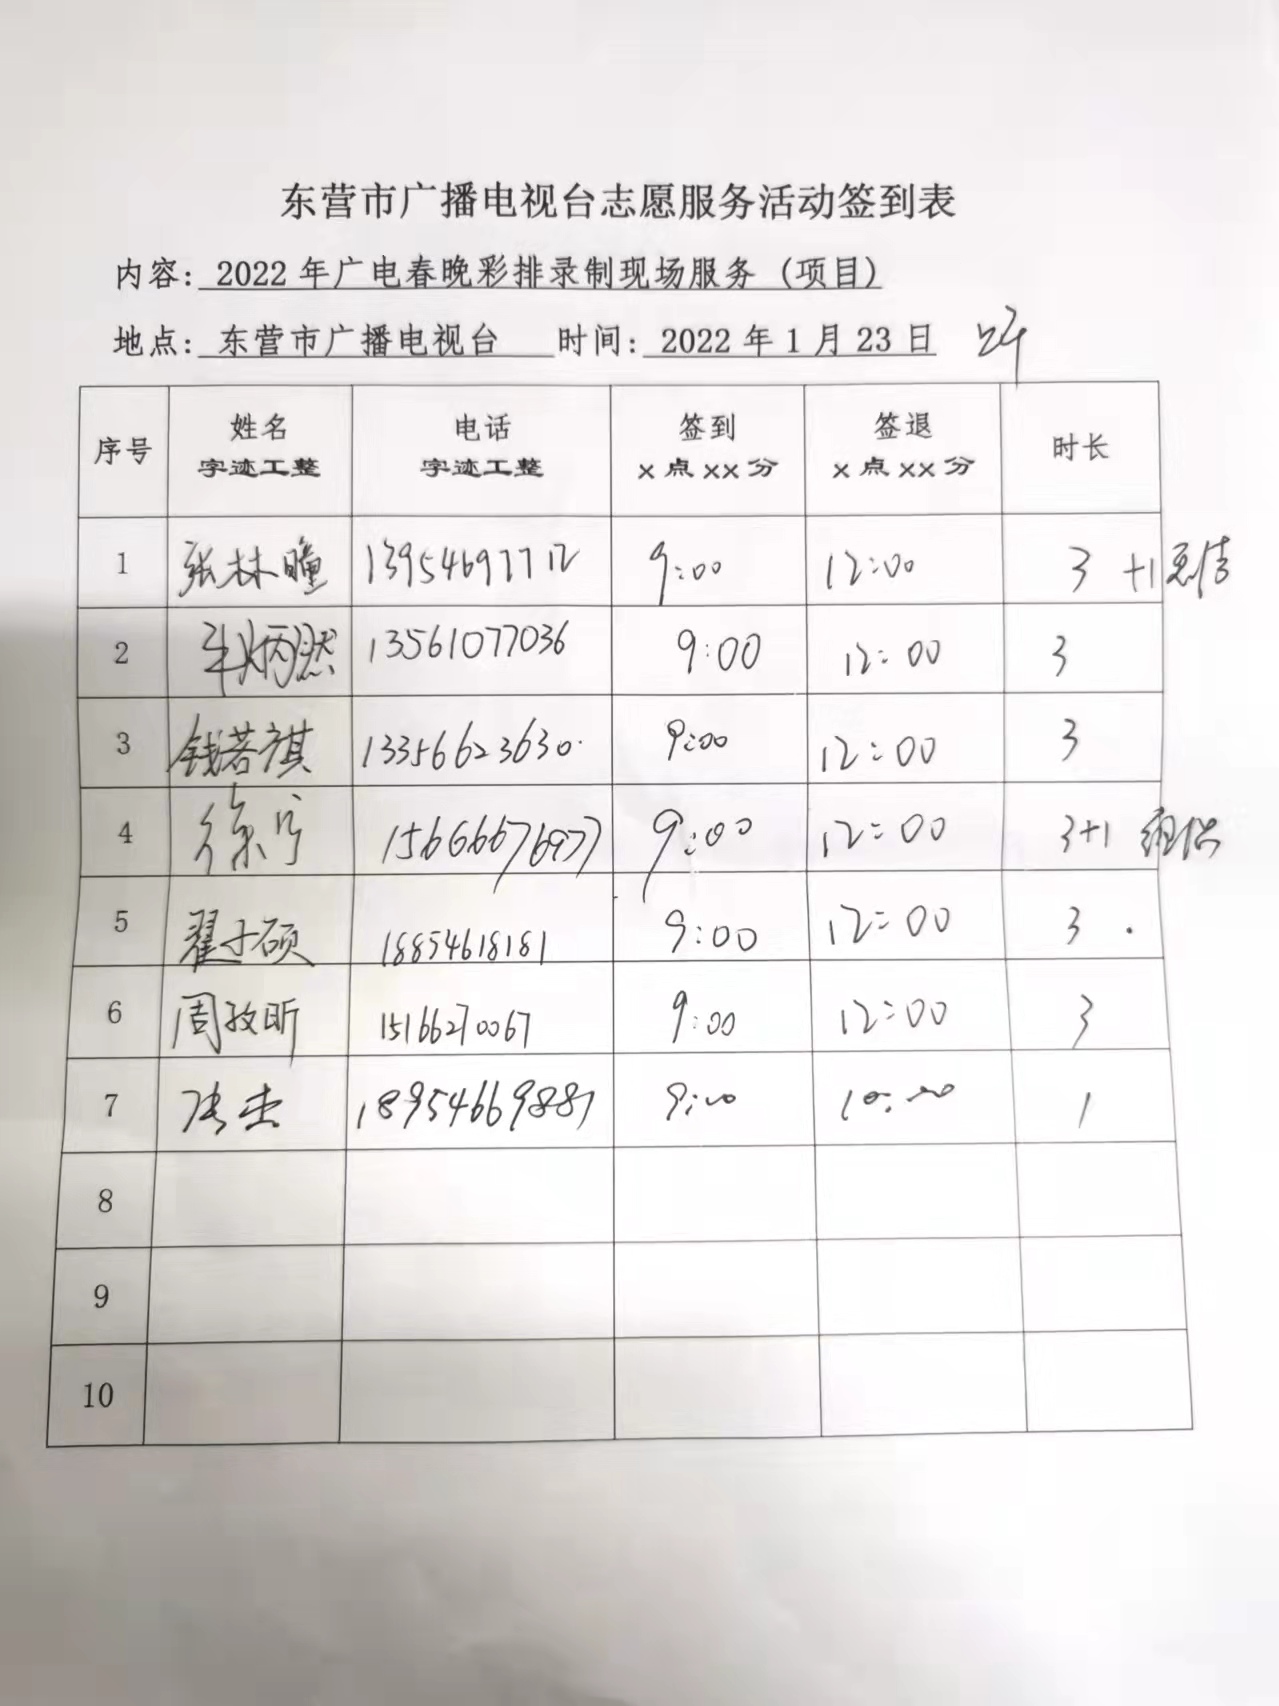 东营市广播电视台志愿服务活动签到表
内容: 2022 年广电春晚彩排录制现场服务 (项目)
地点: 东营市广播电视台 时间: 2022 年 1 月 23 日
序号 姓名 字迹工整 电话 字迹工整 签到 x 点 xx 分 签退 x 点 xx 分 时长
1 张林曈 13954697712 9:00 12:00 3 +1
2 牟炳燃 13561077036 9:00 12:00 3
3 钱若祺 13356623630 9:00 12:00 3
4 徐宁 15666676977 9:00 12:00 3+1
5 翟子硕 18854618181 9:00 12:00 3
6 周孜昕 15166270067 9:00 12:00 3
7 18954669887 9:00 10:00 1
8
9
10